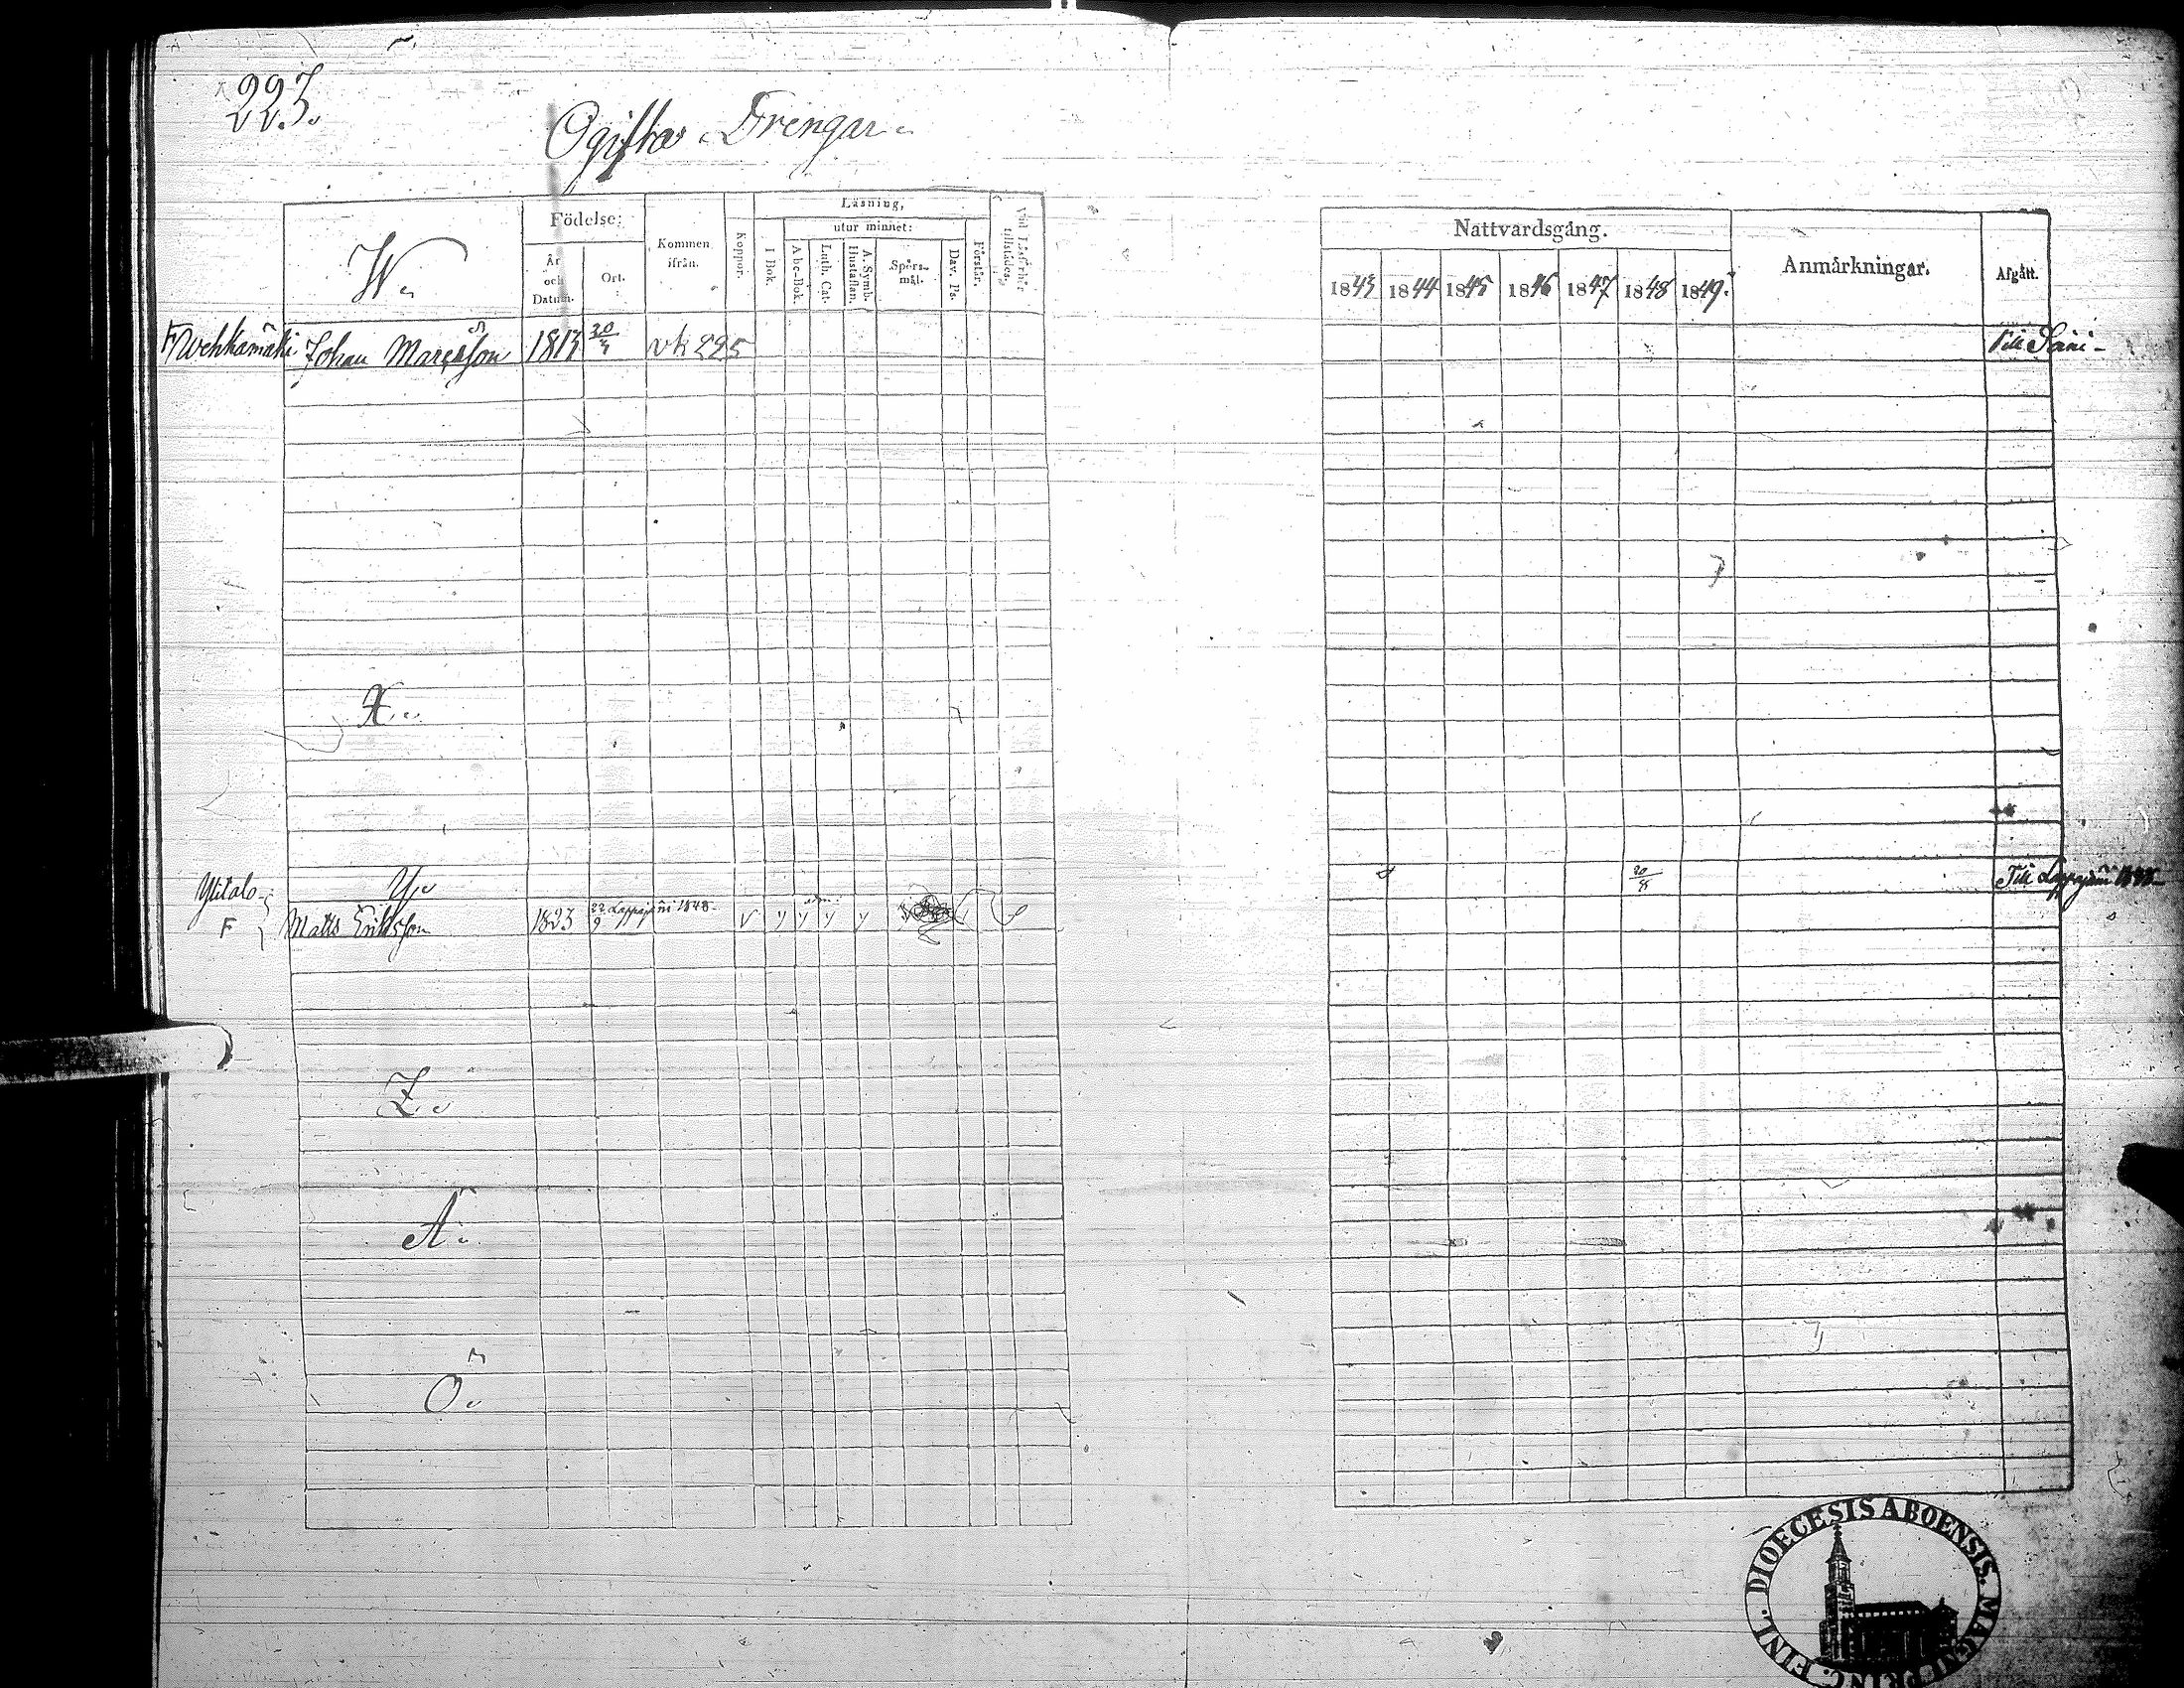 223.
Ogifta Drengar
W.
Födelse:
År och Datum.
Ort.
Kommen ifrån.
Koppor.
Läsning,
utur minnet:
I Bok.
Abc-Bok.
Luth. Cat.
Hustaflan.
A. Symb.
Spörs-mål.
Dav. Ps.
Förstår.
Vid Läsförhör tillstädes.
Nattvardsgång.
1843 1844 1845 1846 1847 1848 1849.
Anmärkningar.
Afgått.
F Wehkamäki Johan 1813 20 vk 225 Till
X.
Ylitalo
Y.
F Matts Eriksson 1823 22/9 Lappajärvi 1848
20
Till Lappajärvi 1848
Z.
A.
Ö.
DIOECESIS ABOENSIS. MAGNI PRINC. FINL.